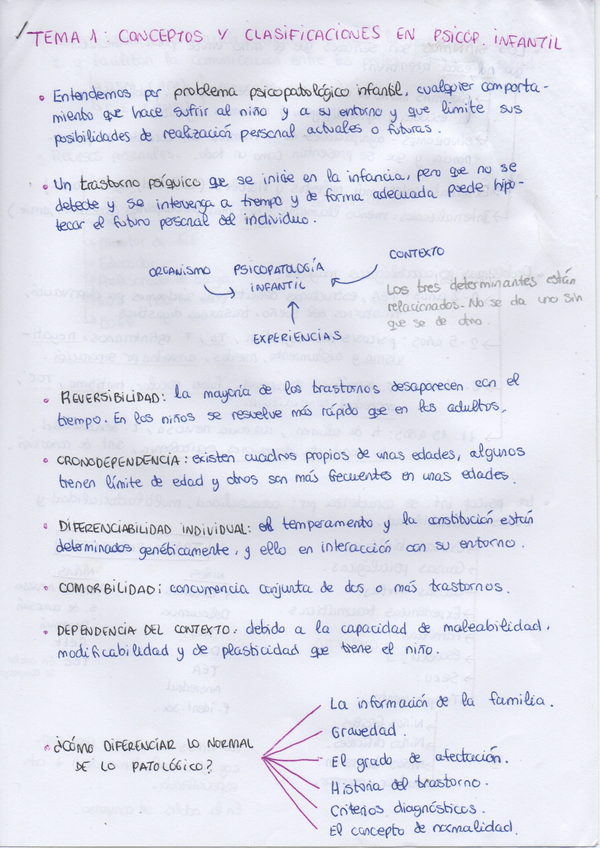 TEMA 1: CONCEPTOS Y CLASIFICACIONES EN PSICOP. INFANTIL
• Entendemos por problema psicopatológico infantil, cualquier comporta-
miento que hace sufrir al niño y a su entorno y que limite sus
posibilidades de realización personal actuales o futuras.
• Un trastorno psíquico que se inicie en la infancia, pero que no se
detecte y se intervenga a tiempo y de forma adecuada puede hipo-
tecar el futuro personal del individuo.
CONTEXTO
ORGANISMO PSICOPATOLOGÍA
INFANTIL
EXPERIENCIAS
Los tres determinantes están
relacionados. No se da uno sin
que se de otro.
• REVERSIBILIDAD: la mayoría de los trastornos desaparecen con el
tiempo. En los niños se resuelve más rápido que en los adultos.
• CRONODEPENDENCIA: existen cuadros propios de unas edades, algunos
tienen límite de edad y otros son más frecuentes en unas edades.
• DIFERENCIABILIDAD INDIVIDUAL: el temperamento y la constitución están
determinados genéticamente, y ello en interacción con su entorno.
• COMORBILIDAD: concurrencia conjunta de dos o más trastornos.
• DEPENDENCIA DEL CONTEXTO: debido a la capacidad de maleabilidad,
modificabilidad y de plasticidad que tiene el niño.
• ¿CÓMO DIFERENCIAR LO NORMAL
DE LO PATOLÓGICO?
La información de la familia.
Gravedad.
El grado de afectación.
Historia del trastorno.
Criterios diagnósticos.
El concepto de normalidad.